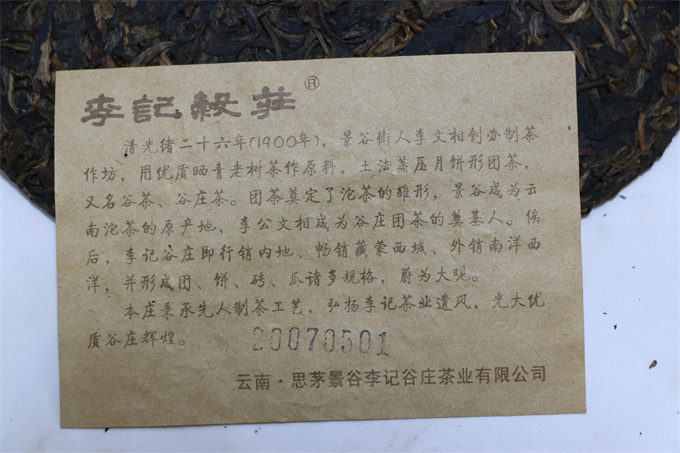 李記穀莊®
清光绪二十六年(1900年)，景谷街人李文相创办制茶
作坊，用优质晒青老树茶作原料，土法蒸压月饼形团茶，
又名谷茶、谷庄茶。团茶奠定了沱茶的雏形，景谷成为云
南沱茶的原产地，李公文相成为谷庄团茶的奠基人。俟
后，李记谷庄即行销内地、畅销藏蒙西域、外销南洋西
洋，并形成团、饼、砖、瓜诸多规格，蔚为大观。
本庄秉承先人制茶工艺，弘扬李记茶业遗风，光大优
质谷庄辉煌。
20070501
云南·思茅景谷李记谷庄茶业有限公司